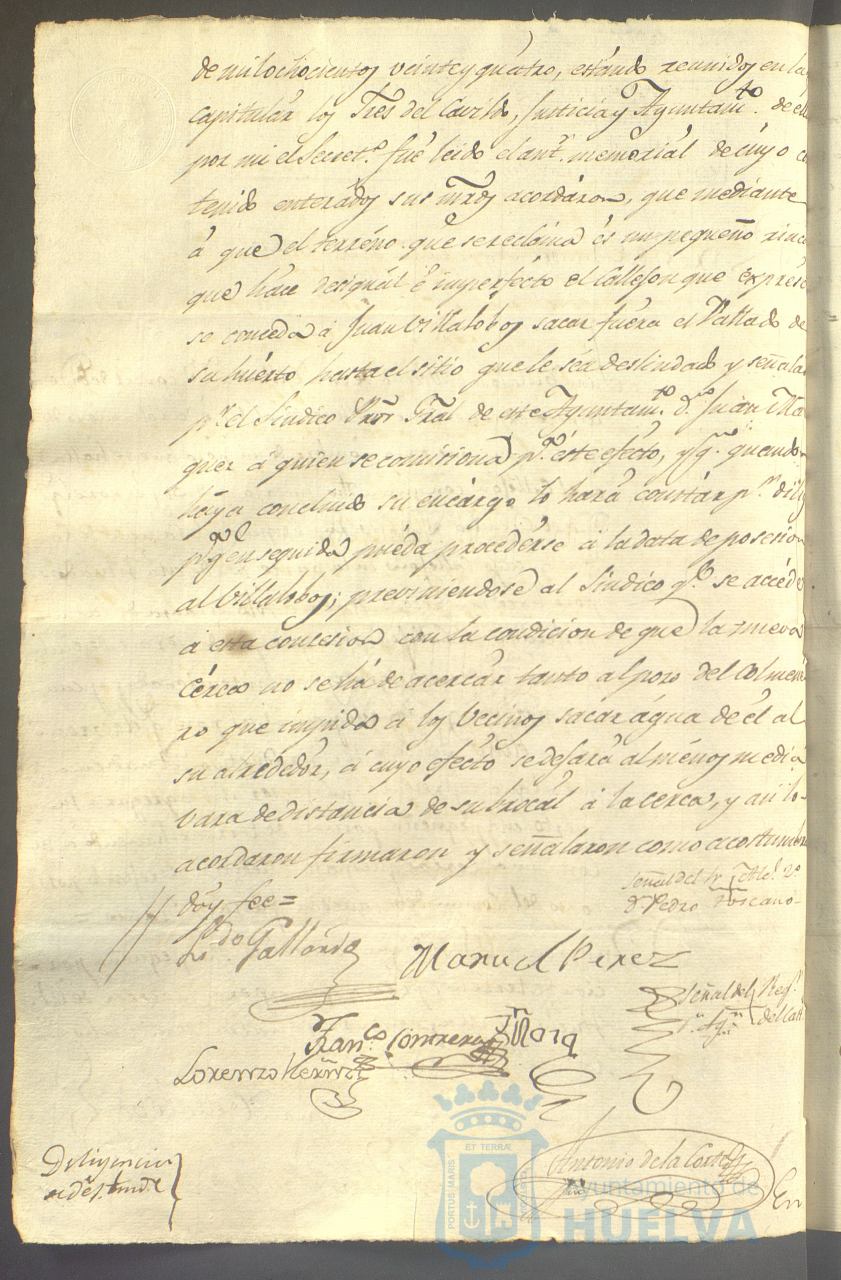 de mil ochocientos veinte y quatro, estando reunidos en la
capitular los Sres del Cavildo, Justicia y Ayuntamto. de el
por mi el Secreto. fué leido el ant. memorial de cuyo co
tenido enterados sus mrds acordaron, que mediante
á que el terreno que se reclama és un pequeño rinco
que hace desiguál é imperfécto el Callejon que expresa
se conceda á Juan Villalobos sacar fuera el Vallado de
su huérto hasta el sitio que le séa deslindado y señala
pr. el Sindico Pror Gral de este Ayuntamto. Dn. Juan Ma
guer á quien se comisiona pa. éste efécto, y qe. quando
háya concluido su encárgo lo hará constár pr. dilig
pa. qe enseguida puéda procedérse a la data de posesion
al Villalobos; previniendose al Sindico qe. se accéde
á esta concesion con la condicion de que la nueva
cérca no se há de acercár tanto al pozo del Colmena
ro que impida á los Vecinos sacar água de él al
su alrededór, á cuyo efécto se dejará al ménos media
vara de distancia de su brocál á la cerca, y asi lo
acordaron firmaron y señalaron como acostumbra
doy fee=
Señal del Sr. Alce. 2o.
Dn. Pedro Toscano
Ldo Gallardo
Manuel Perez
Señal del Regr.
Franco. Contreras
Lorenzo Hernz
Diligencia
de deslinde
Antonio de la Corte
En
PORTUS MARIS ET TERRÆ
Ayuntamiento de
HUELVA